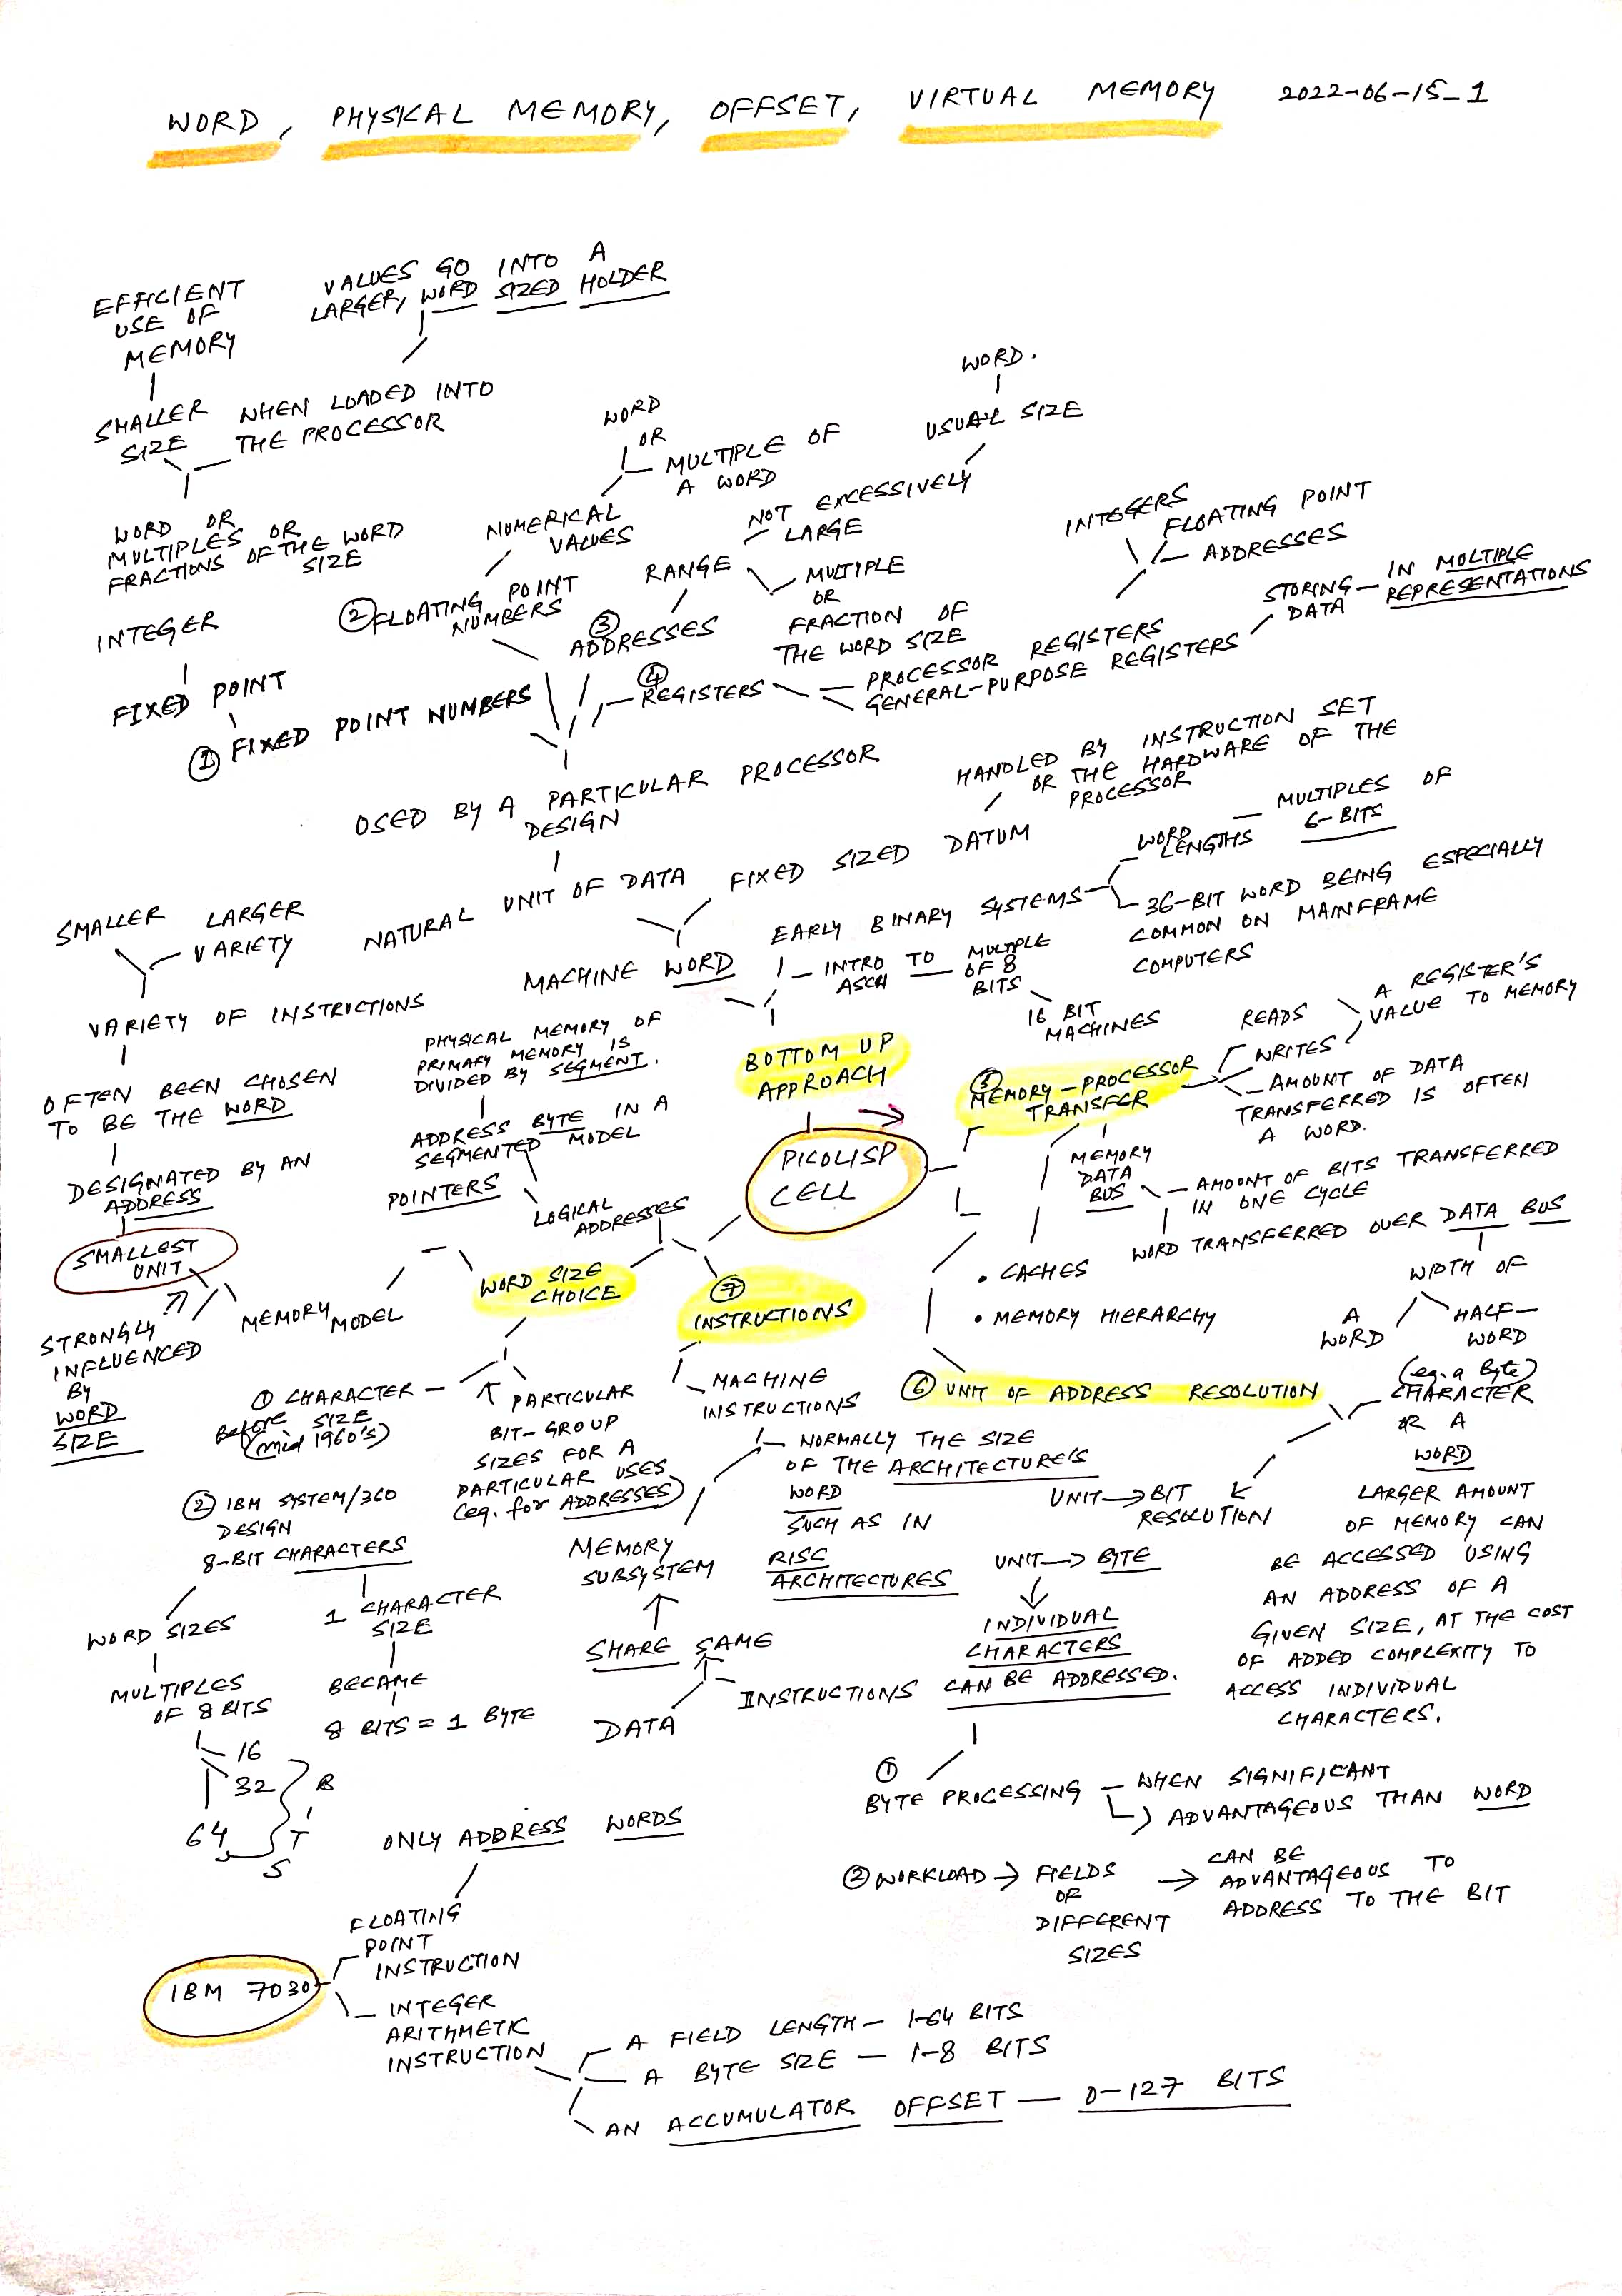 WORD, PHYSICAL MEMORY, OFFSET, VIRTUAL MEMORY 2022-06-15_1
EFFICIENT
USE OF
MEMORY
VALUES GO INTO A
LARGER, WORD SIZED HOLDER
SMALLER
SIZE
WHEN LOADED INTO
THE PROCESSOR
WORD OR
MULTIPLES OR
FRACTIONS OF THE WORD
SIZE
INTEGER
FIXED POINT
① FIXED POINT NUMBERS
WORD
OR
MULTIPLE OF
A WORD
NUMERICAL
VALUES
② FLOATING POINT
NUMBERS
WORD.
USUAL SIZE
NOT EXCESSIVELY
LARGE
RANGE
MULTIPLE
OR
FRACTION OF
THE WORD SIZE
③
ADDRESSES
④
REGISTERS
PROCESSOR REGISTERS
GENERAL-PURPOSE REGISTERS
INTEGERS
FLOATING POINT
ADDRESSES
STORING
DATA
IN MULTIPLE
REPRESENTATIONS
USED BY A PARTICULAR PROCESSOR
DESIGN
NATURAL UNIT OF DATA
HANDLED BY INSTRUCTION SET
OR THE HARDWARE OF THE
PROCESSOR
FIXED SIZED DATUM
MACHINE WORD
EARLY BINARY SYSTEMS
WORD
LENGTHS
MULTIPLES OF
6-BITS
36-BIT WORD BEING ESPECIALLY
COMMON ON MAINFRAME
COMPUTERS
INTRO TO MULTIPLE
ASCII OF 8
BITS
16 BIT
MACHINES
BOTTOM UP
APPROACH
PICOLISP
CELL
SMALLER LARGER
VARIETY
VARIETY OF INSTRUCTIONS
OFTEN BEEN CHOSEN
TO BE THE WORD
DESIGNATED BY AN
ADDRESS
SMALLEST
UNIT
STRONGLY
INFLUENCED
BY
WORD
SIZE
MEMORY MODEL
PHYSICAL MEMORY OF
PRIMARY MEMORY IS
DIVIDED BY SEGMENT.
ADDRESS BYTE IN A
SEGMENTED MODEL
POINTERS
LOGICAL
ADDRESSES
WORD SIZE
CHOICE
⑤
MEMORY-PROCESSOR
TRANSFER
READS
WRITES
A REGISTER'S
VALUE TO MEMORY
AMOUNT OF DATA
TRANSFERRED IS OFTEN
A WORD.
MEMORY
DATA
BUS
AMOUNT OF BITS TRANSFERRED
IN ONE CYCLE
WORD TRANSFERRED OVER DATA BUS
WIDTH OF
A
WORD
HALF-
WORD
• CACHES
• MEMORY HIERARCHY
⑦
INSTRUCTIONS
MACHINE
INSTRUCTIONS
NORMALLY THE SIZE
OF THE ARCHITECTURE'S
WORD
SUCH AS IN
RISC
ARCHITECTURES
MEMORY
SUBSYSTEM
SHARE SAME
INSTRUCTIONS
DATA
① CHARACTER
SIZE
Before
(mid 1960's)
PARTICULAR
BIT-GROUP
SIZES FOR A
PARTICULAR USES
(eg. for ADDRESSES)
② IBM SYSTEM/360
DESIGN
8-BIT CHARACTERS
WORD SIZES
MULTIPLES
OF 8 BITS
16
32
64
BITS
1 CHARACTER
SIZE
BECAME
8 BITS = 1 BYTE
⑥ UNIT OF ADDRESS RESOLUTION
(eg. a Byte)
CHARACTER
OR A
WORD
LARGER AMOUNT
OF MEMORY CAN
BE ACCESSED USING
AN ADDRESS OF A
GIVEN SIZE, AT THE COST
OF ADDED COMPLEXITY TO
ACCESS INDIVIDUAL
CHARACTERS.
UNIT → BIT
RESOLUTION
UNIT → BYTE
INDIVIDUAL
CHARACTERS
CAN BE ADDRESSED.
①
BYTE PROCESSING — WHEN SIGNIFICANT
ADVANTAGEOUS THAN WORD
② WORKLOAD → FIELDS
OF
DIFFERENT
SIZES
→ CAN BE
ADVANTAGEOUS TO
ADDRESS TO THE BIT
ONLY ADDRESS WORDS
FLOATING
POINT
INSTRUCTION
IBM 7030
INTEGER
ARITHMETIC
INSTRUCTION
A FIELD LENGTH — 1-64 BITS
A BYTE SIZE — 1-8 BITS
AN ACCUMULATOR OFFSET — 0-127 BITS